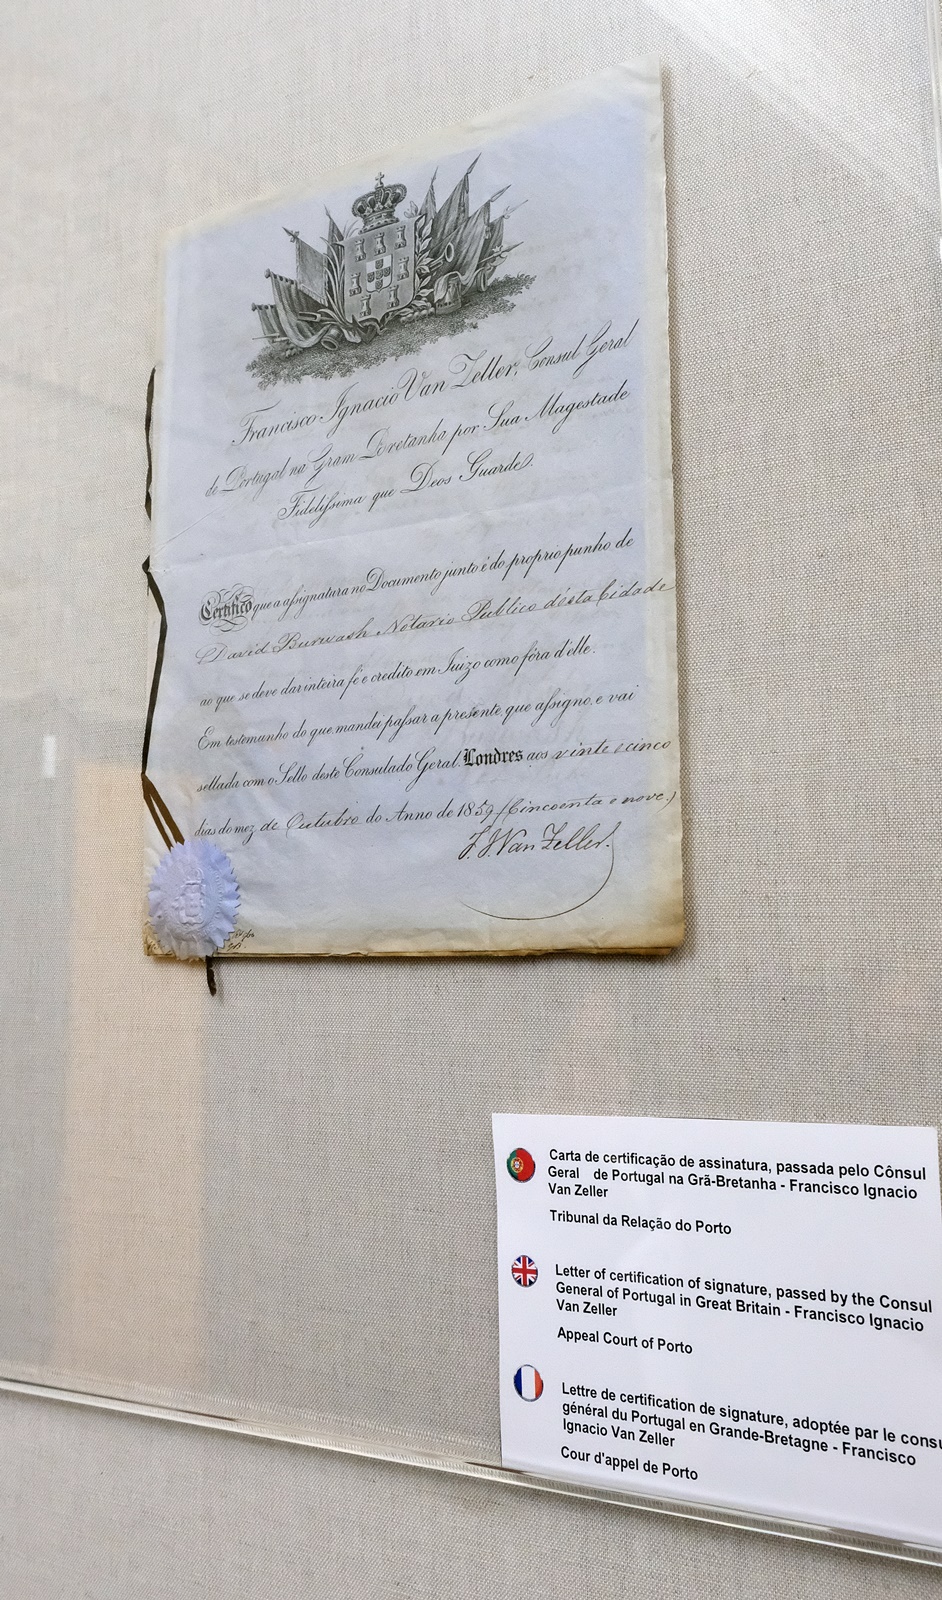 Francisco Ignacio Van Zeller, Consul Geral
de Portugal na Gram Bretanha por Sua Magestade
Fidelissima que Deos Guarde.
Certifico que a assignatura no Documento junto é do proprio punho de
David Burwash Notario Publico désta Cidade
ao que se deve dar inteira fé e credito em Juizo como fóra d'elle.
Em testemunho do que mandei passar a presente, que assigno, e vai
sellada com o Sello deste Consulado Geral. Londres aos vinte e cinco
dias do mez de Outubro do Anno de 1859 (Cincoenta e nove.)
F. I. Van Zeller.
Carta de certificação de assinatura, passada pelo Cônsul
Geral de Portugal na Grã-Bretanha - Francisco Ignacio
Van Zeller
Tribunal da Relação do Porto
Letter of certification of signature, passed by the Consul
General of Portugal in Great Britain - Francisco Ignacio
Van Zeller
Appeal Court of Porto
Lettre de certification de signature, adoptée par le consu
général du Portugal en Grande-Bretagne - Francisco
Ignacio Van Zeller
Cour d'appel de Porto